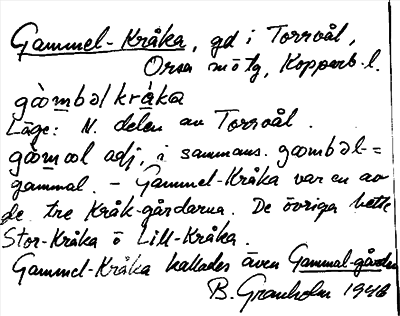 Gammel-Kråka, gd i Torrvål,
Orsa mötg, Kopparb. l.
gòm̲bəl krá̀ka
Läge: N. delen av Torrvål.
gòm̲ol adj, i sammans. gombəl- =
gammal. - Gammel-Kråka var en av
de tre Kråk-gårdarna. De övriga hette
Stor-Kråka o Lill-Kråka.
Gammel-Kråka kallades även Gammal-gården
B. Granholm 1946